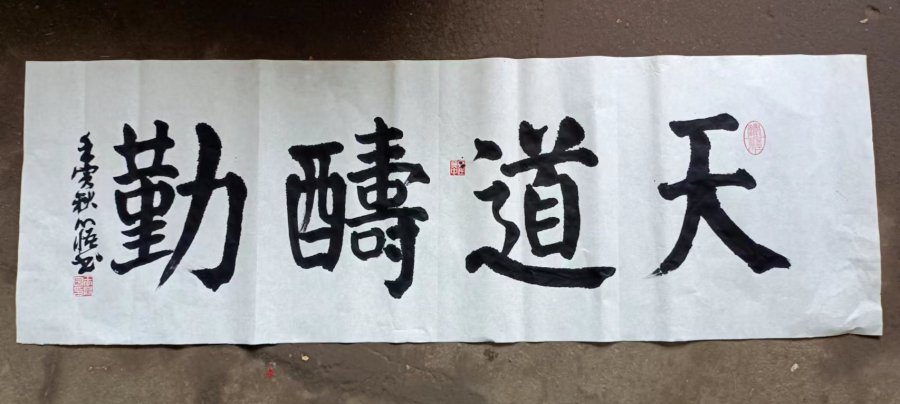 天道醻勤
壬寅秋心悟书